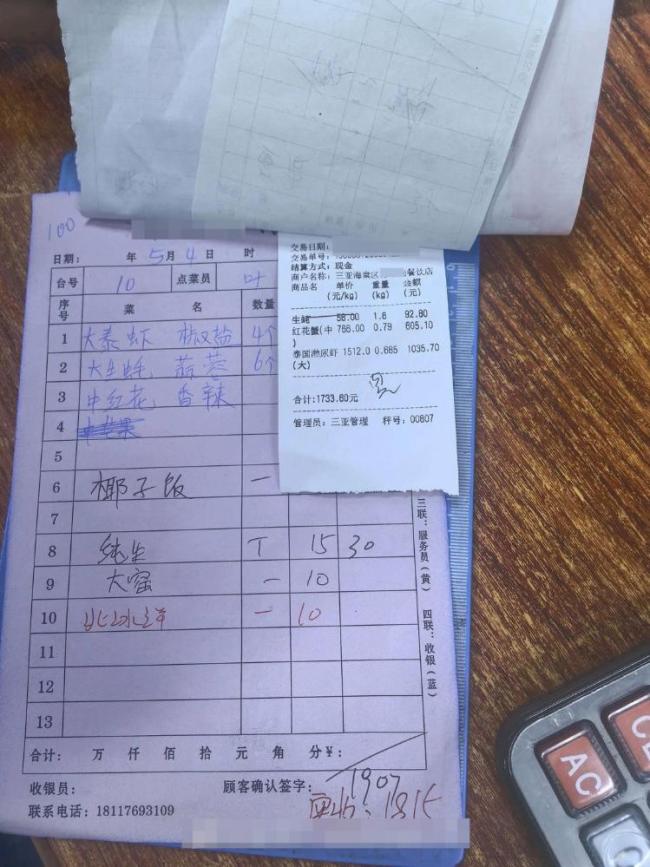 100
日期： 年5月4日 时
台号 10 点菜员 叶
序号 菜 名 数量
1 大泰虾 椒盐 4个
2 大生蚝 蒜蓉 6个
3 中红花 香辣
4
5
6 椰子饭 一
7
8 纯生 T 15 30
9 大窑 一 10
10 北冰洋 一 10
11
12
13
合计： 万 仟 佰 拾 元 角 分¥：
收银员： 顾客确认签字： 1907
联系电话：18117693109 实收：1815
三联：服务员（黄） 四联：收银（蓝）
交易日期：
交易单号：
结算方式：现金
商户名称：三亚海棠区 餐饮店
商品名 单价 重量 金额
(元/kg) (kg) (元)
生蚝 58.00 1.6 92.80
红花蟹(中 766.00 0.79 605.10
)
泰国濑尿虾 1512.0 0.685 1035.70
(大)
合计:1733.60元
管理员：三亚管理 秤号：00807
AC